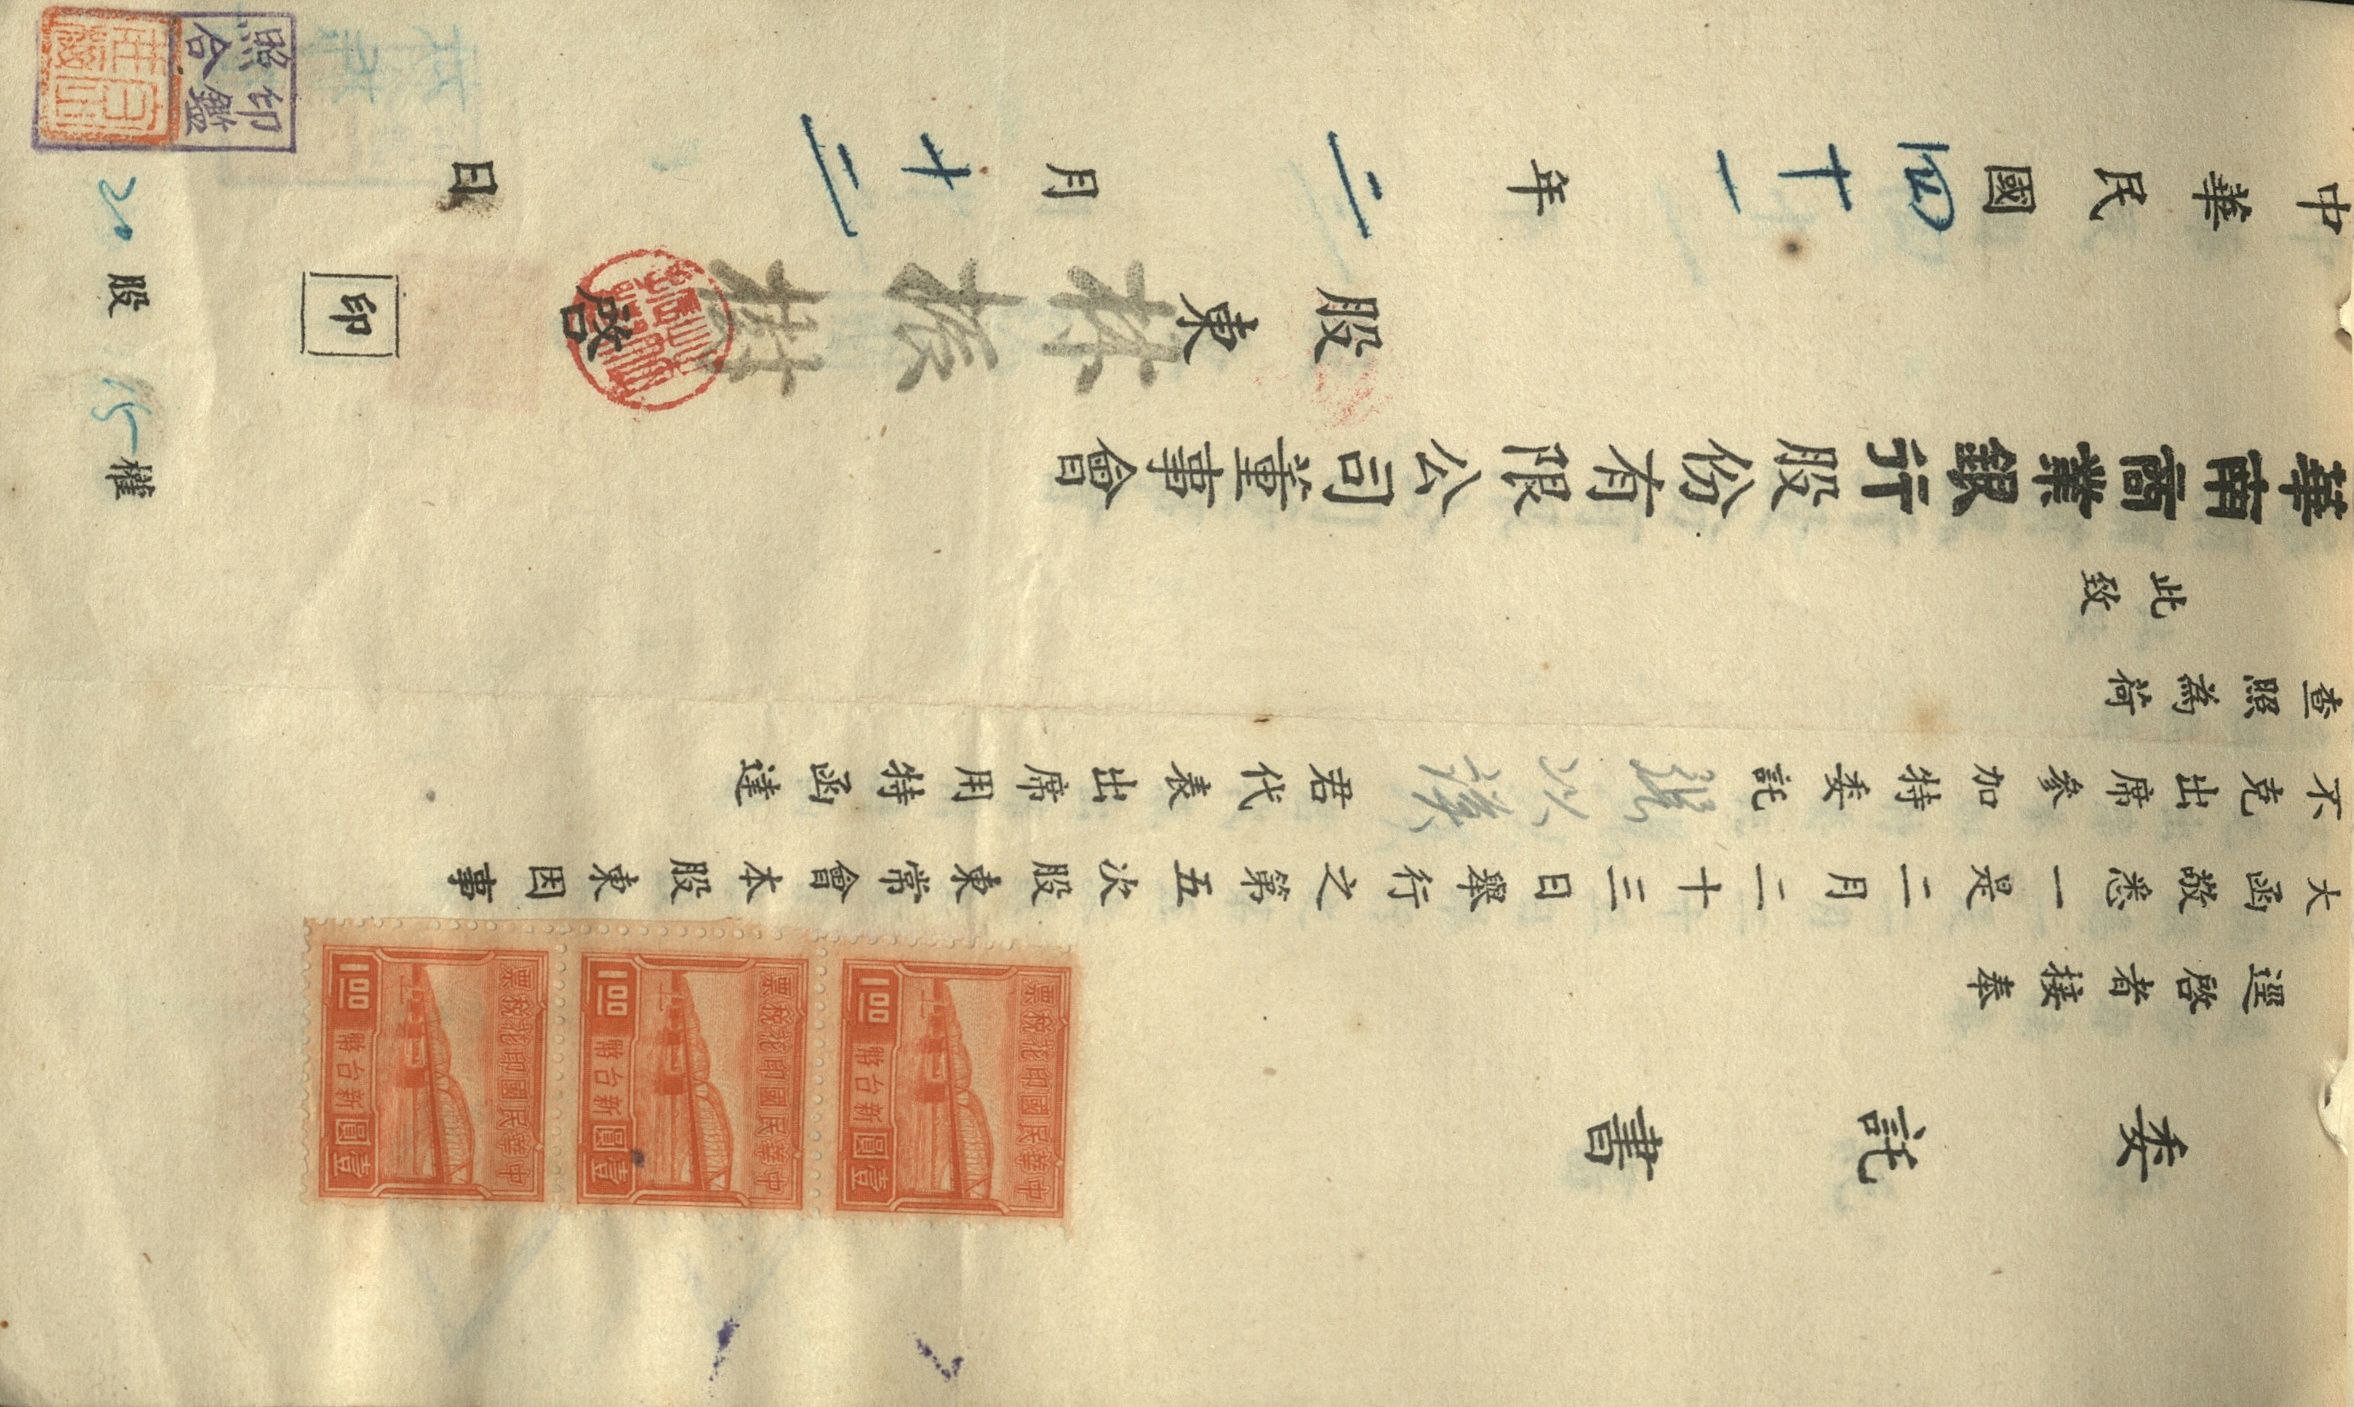 委託書
逕啓者接奉
大函敬悉一是二月二十三日舉行之第五次股東常會本股東因事
不克出席參加特委託 以謨君代表出席用特函達
查照為荷
此致
華南商業銀行股份有限公司董事會
股東林振樹啓
印
中華民國四十一年二月十二日
20股 權
印鑑
照合
中華民國印花稅票
1.00
新台幣
壹圓
中華民國印花稅票
1.00
新台幣
壹圓
中華民國印花稅票
1.00
新台幣
壹圓